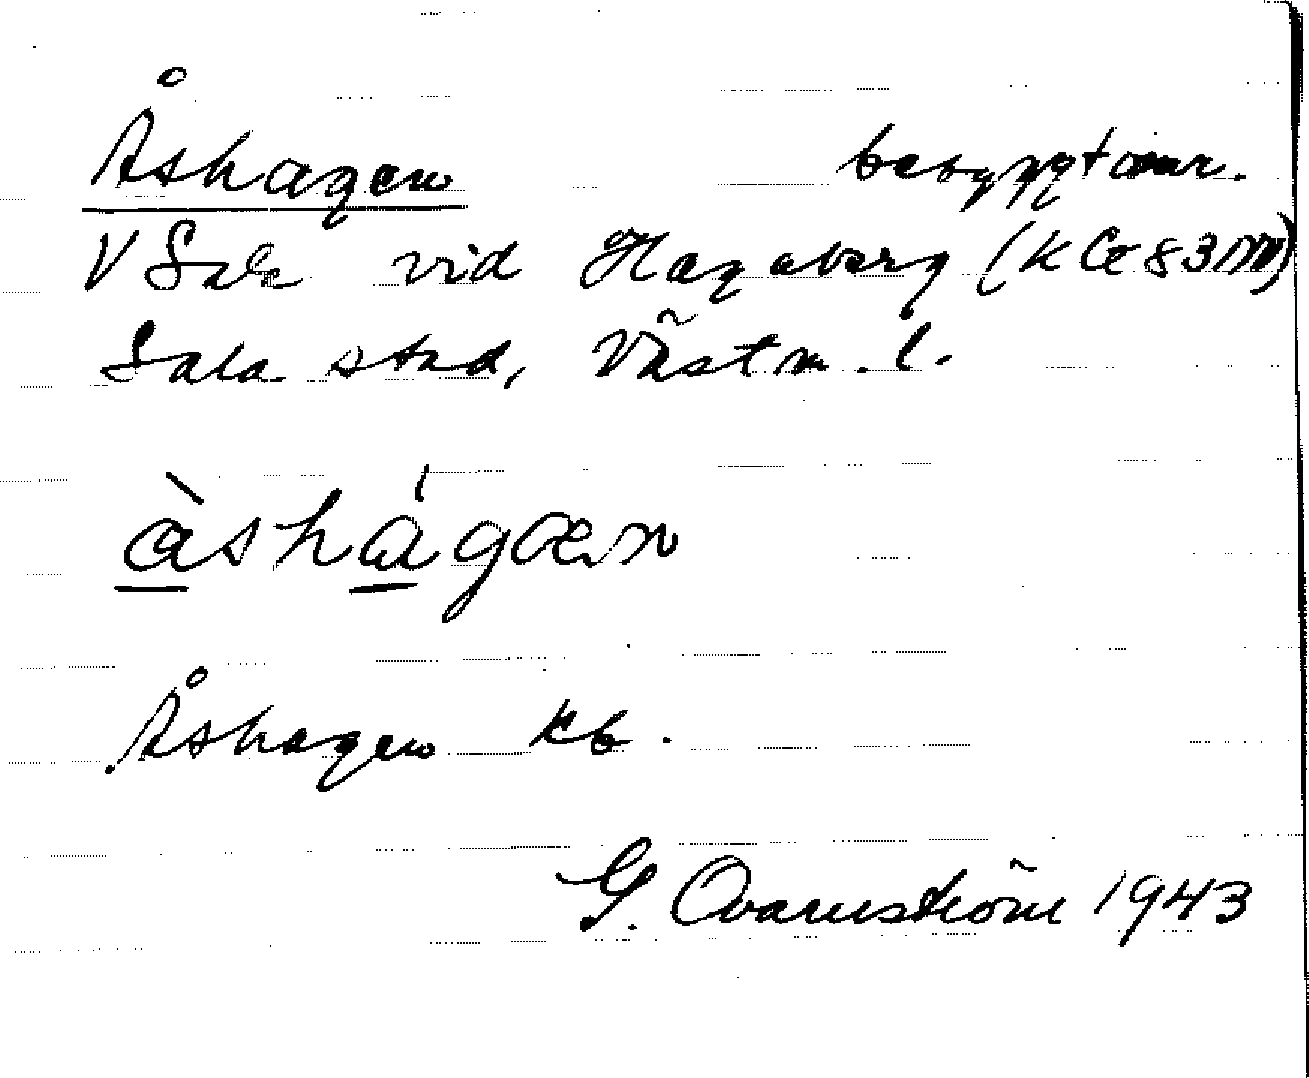 Åshagen bebyggt omr.
V Sala vid Hagaberg (K Ce 83
Sala stad, Västm. l.
àshágæn
Åshagen kb.
G. Qvarnström 1943